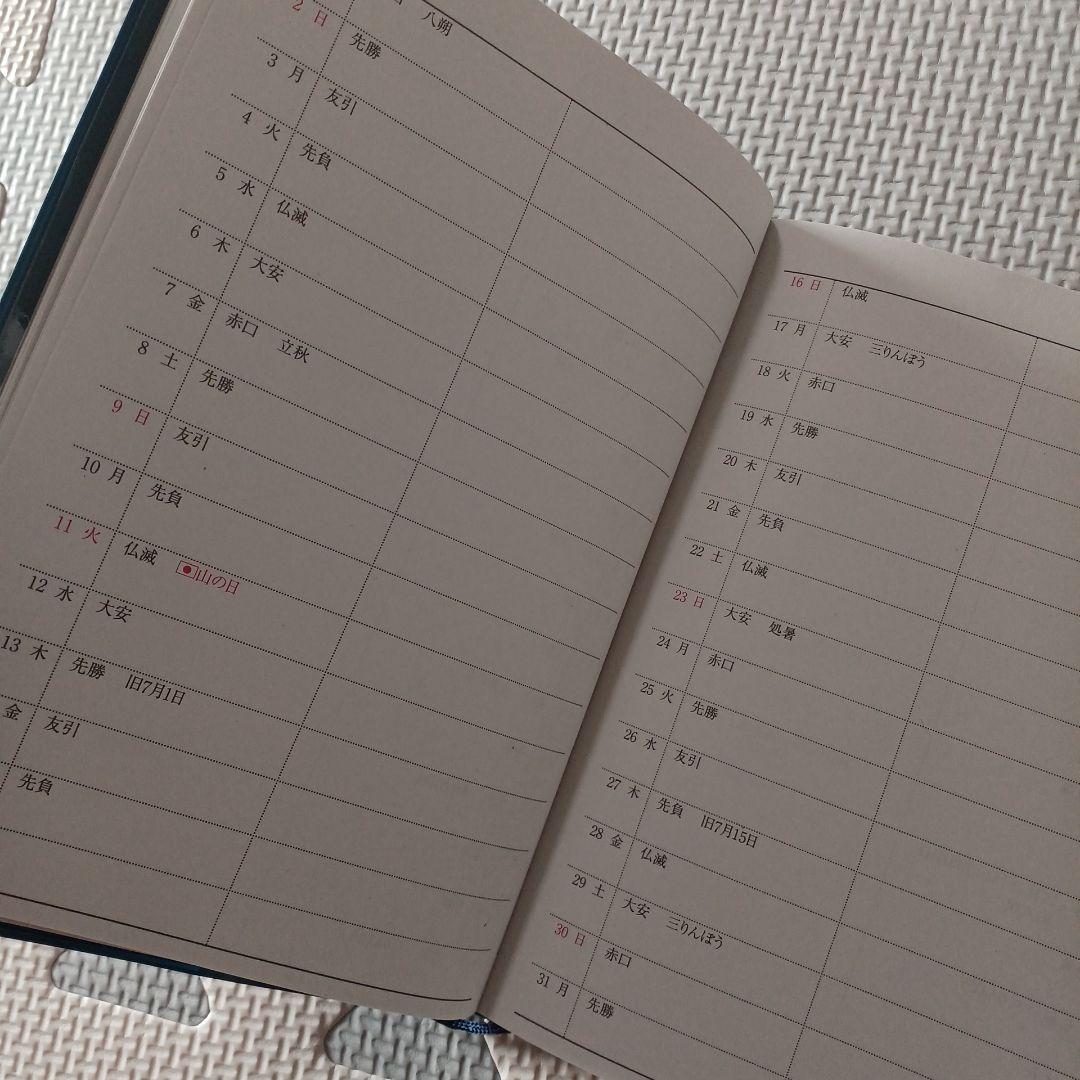 八朔
2 日 先勝
3 月 友引
4 火 先負
5 水 仏滅
6 木 大安
7 金 赤口 立秋
8 土 先勝
9 日 友引
10 月 先負
11 火 仏滅 山の日
12 水 大安
13 木 先勝 旧7月1日
金 友引
先負
16 日 仏滅
17 月 大安 三りんぼう
18 火 赤口
19 水 先勝
20 木 友引
21 金 先負
22 土 仏滅
23 日 大安 処暑
24 月 赤口
25 火 先勝
26 水 友引
27 木 先負 旧7月15日
28 金 仏滅
29 土 大安 三りんぼう
30 日 赤口
31 月 先勝